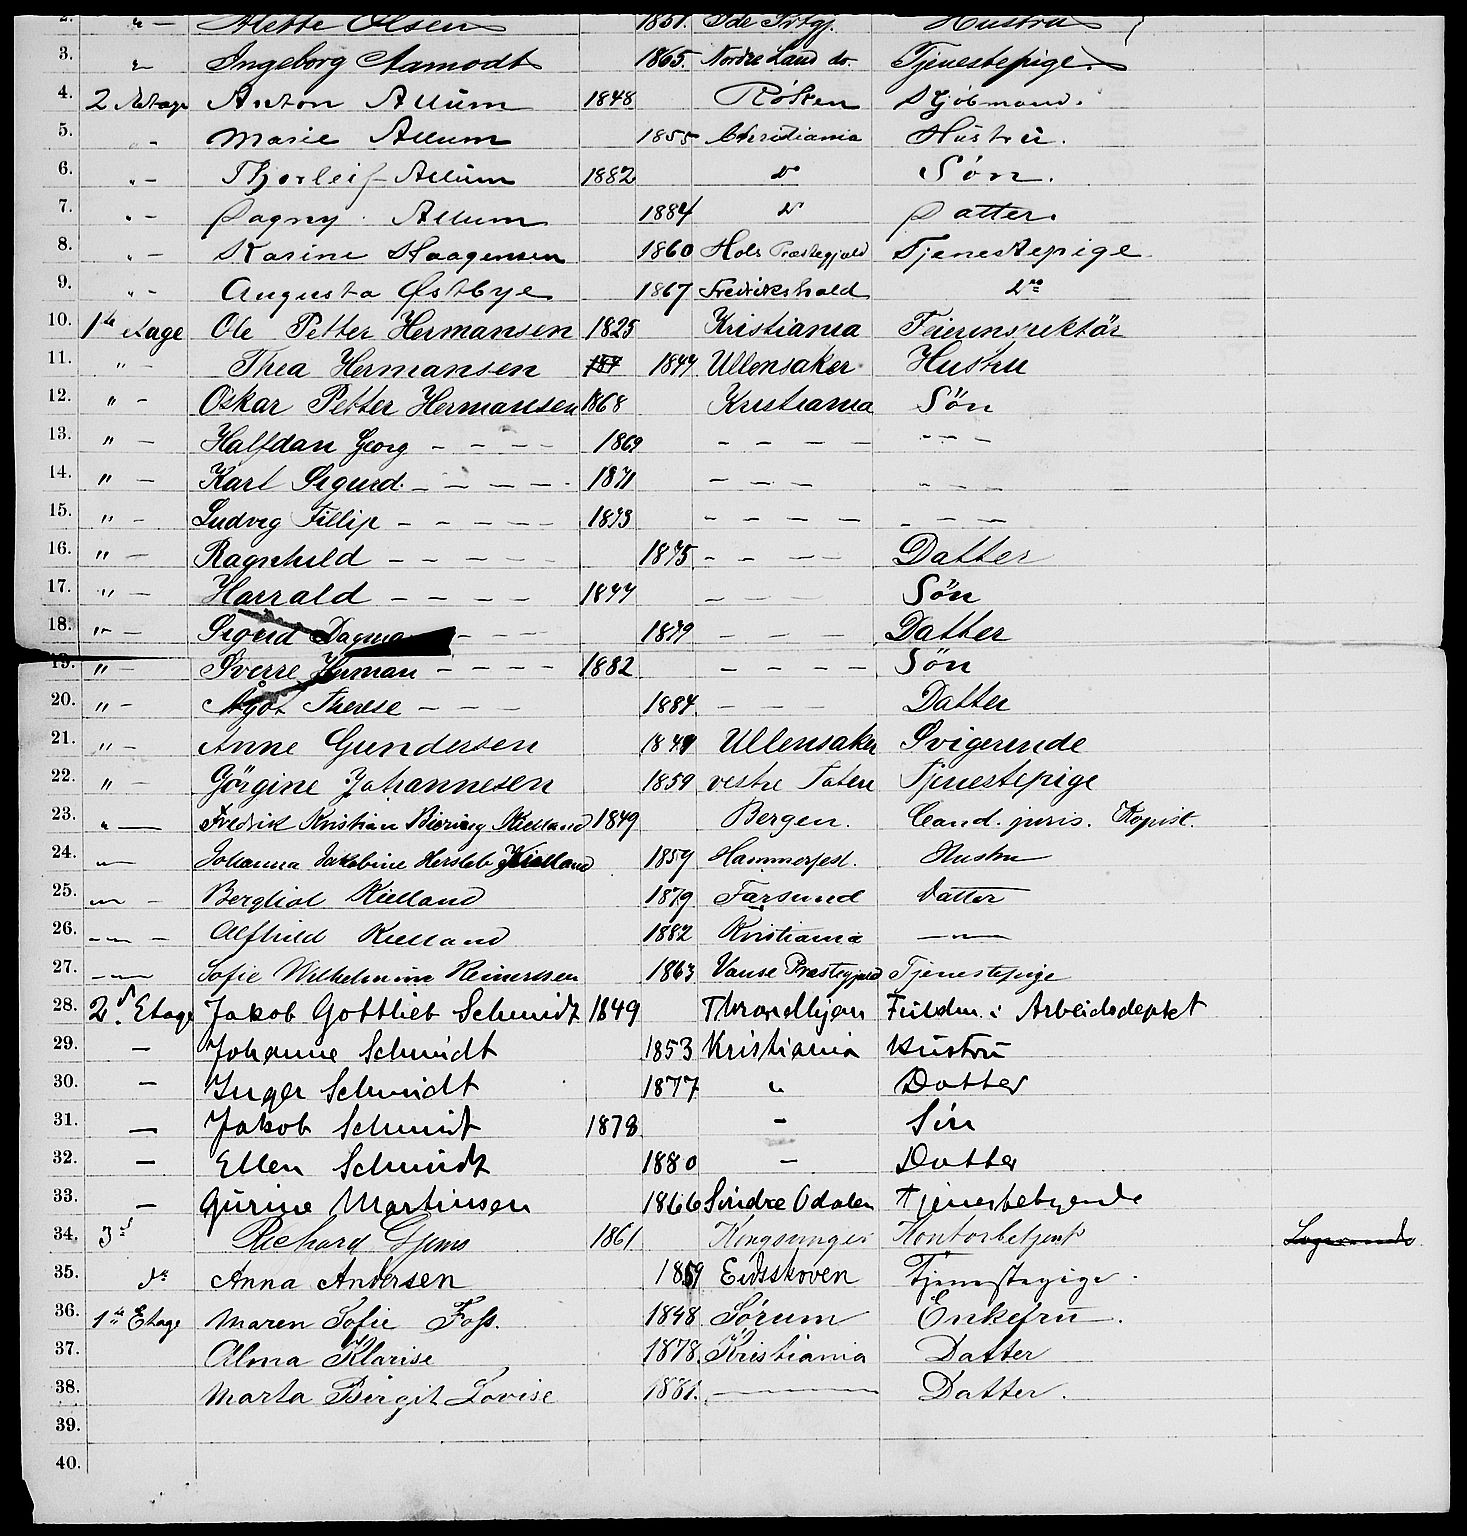 2. " - Alette Olsen 1851. Ide Prtgj. Hustru
3. " Ingeborg Aamodt 1865. Nordre Land do. Tjenestepige.
4. 2 Etage Anton Allum 1848 Røken Skjøbmand.
5. " - Marie Allum 1855 Christiania Hustru.
6. " - Thorleif Allum 1882 do Søn.
7. " - Dagny Allum 1884 do Datter.
8. " - Karine Haagensen 1860 Hols Præstegjæld Tjenestepige
9. " - Augusta Østbye 1867 Fredrikshald do
10. 1ste Etage Ole Petter Hermansen 1825 Kristiania Feierinspektör
11. " - Thea Hermansen 187 1844 Ullensaker Hustru
12. " - Oskar Petter Hermansen 1868 Kristiania Sön
13. " - Halfdan Georg - - - - 1869 - - - - - - -
14. " - Karl Sigurd - - - - - 1871 - - - - - - -
15. " - Ludvig Fillip - - - - - 1873 - - - - - - -
16. " - Ragnhild - - - - - 1875 - - - - Datter
17. " - Harrald - - - - 1877 - - - - Sön
18. " - Sigrid Dagmar - - - 1879 - - - - Datter
19. " - Sverre Herman - - - - 1882 - - - - Sön
20. " - Ågot Therese - - - 1884. - - - - Datter
21. " - Anne Gundersen 1849 Ullensaker Svigerinde
22. " - Görgine Johannesen 1859 vestre Toten Tjenestepige
23. " - Fredrik Kristian Biering Kielland 1849 Bergen. Cand. juris. Kopist.
24. " Johanna Jakobine Hersleb Kielland 1859 Hammerfest. Hustru
25. " - Bergliot Kielland 1879 Farsund Datter
26. - " - Alfhild Kielland 1882 Kristiania - " -
27. - " - Sofie Wilhelmine Reinertsen 1863 Vanse Præstegjæld Tjenestepige
28. 2d. Etage Jakob Gottlieb Schmidt 1849 Throndhjem Fuldm. i Arbeidsdeptet
29. - Johanne Schmidt 1853 Kristiania Hustru
30. - Inger Schmidt 1877 " Datter
31. - Jakob Schmidt 1878 - Sön
32. - Ellen Schmidt 1880 - Datter
33. - Gurine Martinsen 1866 Söndre Odalen Tjenestetyende
34. 3d Richard Gjems 1861 Kongsvinger Kontorbetjent Logerende
35. do Anna Andersen 1859 Eidsskoven Tjenestepige.
36. 1ste Etage Maren Sofie Foss. 1848 Sørum Enkefru.
37. Alma Klarise 1878. Kristiania Datter
38. Marta Birgit Lovise 1881. - Datter.
39.
40.